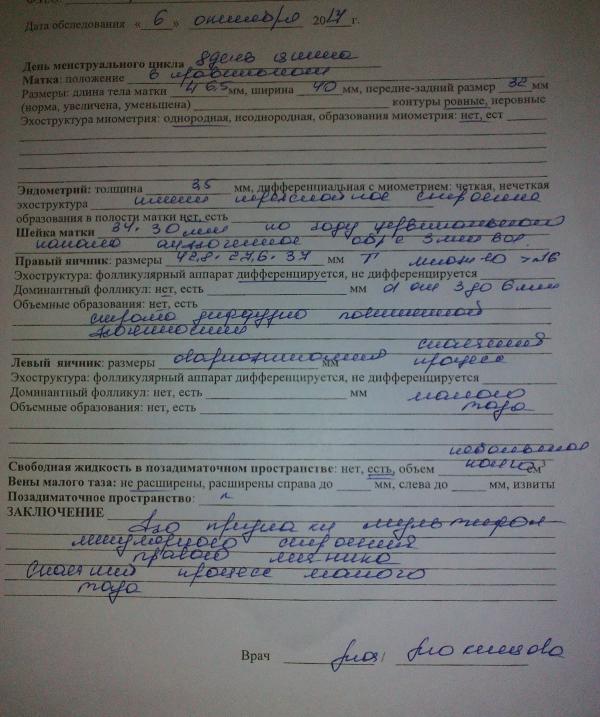 Дата обследования « 6 » октября 2017 г.
День менструального цикла 8 день цикла
Матка: положение в правильном
Размеры: длина тела матки 46,5 мм, ширина 40 мм, передне-задний размер 32 мм
(норма, увеличена, уменьшена) контуры ровные, неровные
Эхоструктура миометрия: однородная, неоднородная, образования миометрия: нет, ест
Эндометрий: толщина 3,5 мм, дифференциальная с миометрием: четкая, нечеткая
эхоструктура строение
образования в полости матки нет, есть
Шейка матки 34 * 30 мм по ходу цервикального
канала анэхогенное обр с 3 мм
Правый яичник: размеры 42,8 * 27,6 * 37 мм множ-во >16
Эхоструктура: фолликулярный аппарат дифференцируется, не дифференцируется
Доминантный фолликул: нет, есть мм d от 3 до 6 мм
Объемные образования: нет, есть
строма диффузно повышенной
эхогенности
спаечный
Левый яичник: размеры мм процесс
Эхоструктура: фолликулярный аппарат дифференцируется, не дифференцируется
Доминантный фолликул: нет, есть мм малого
Объемные образования: нет, есть таза
небольшое
Свободная жидкость в позадиматочном пространстве: нет, есть, объем колич см³
Вены малого таза: не расширены, расширены справа до мм, слева до мм, извиты
Позадиматочное пространство:
ЗАКЛЮЧЕНИЕ
Эхо признаки мультифол-
ликулярного строения
правого яичника
Спаечный процесс малого
таза
Врач /